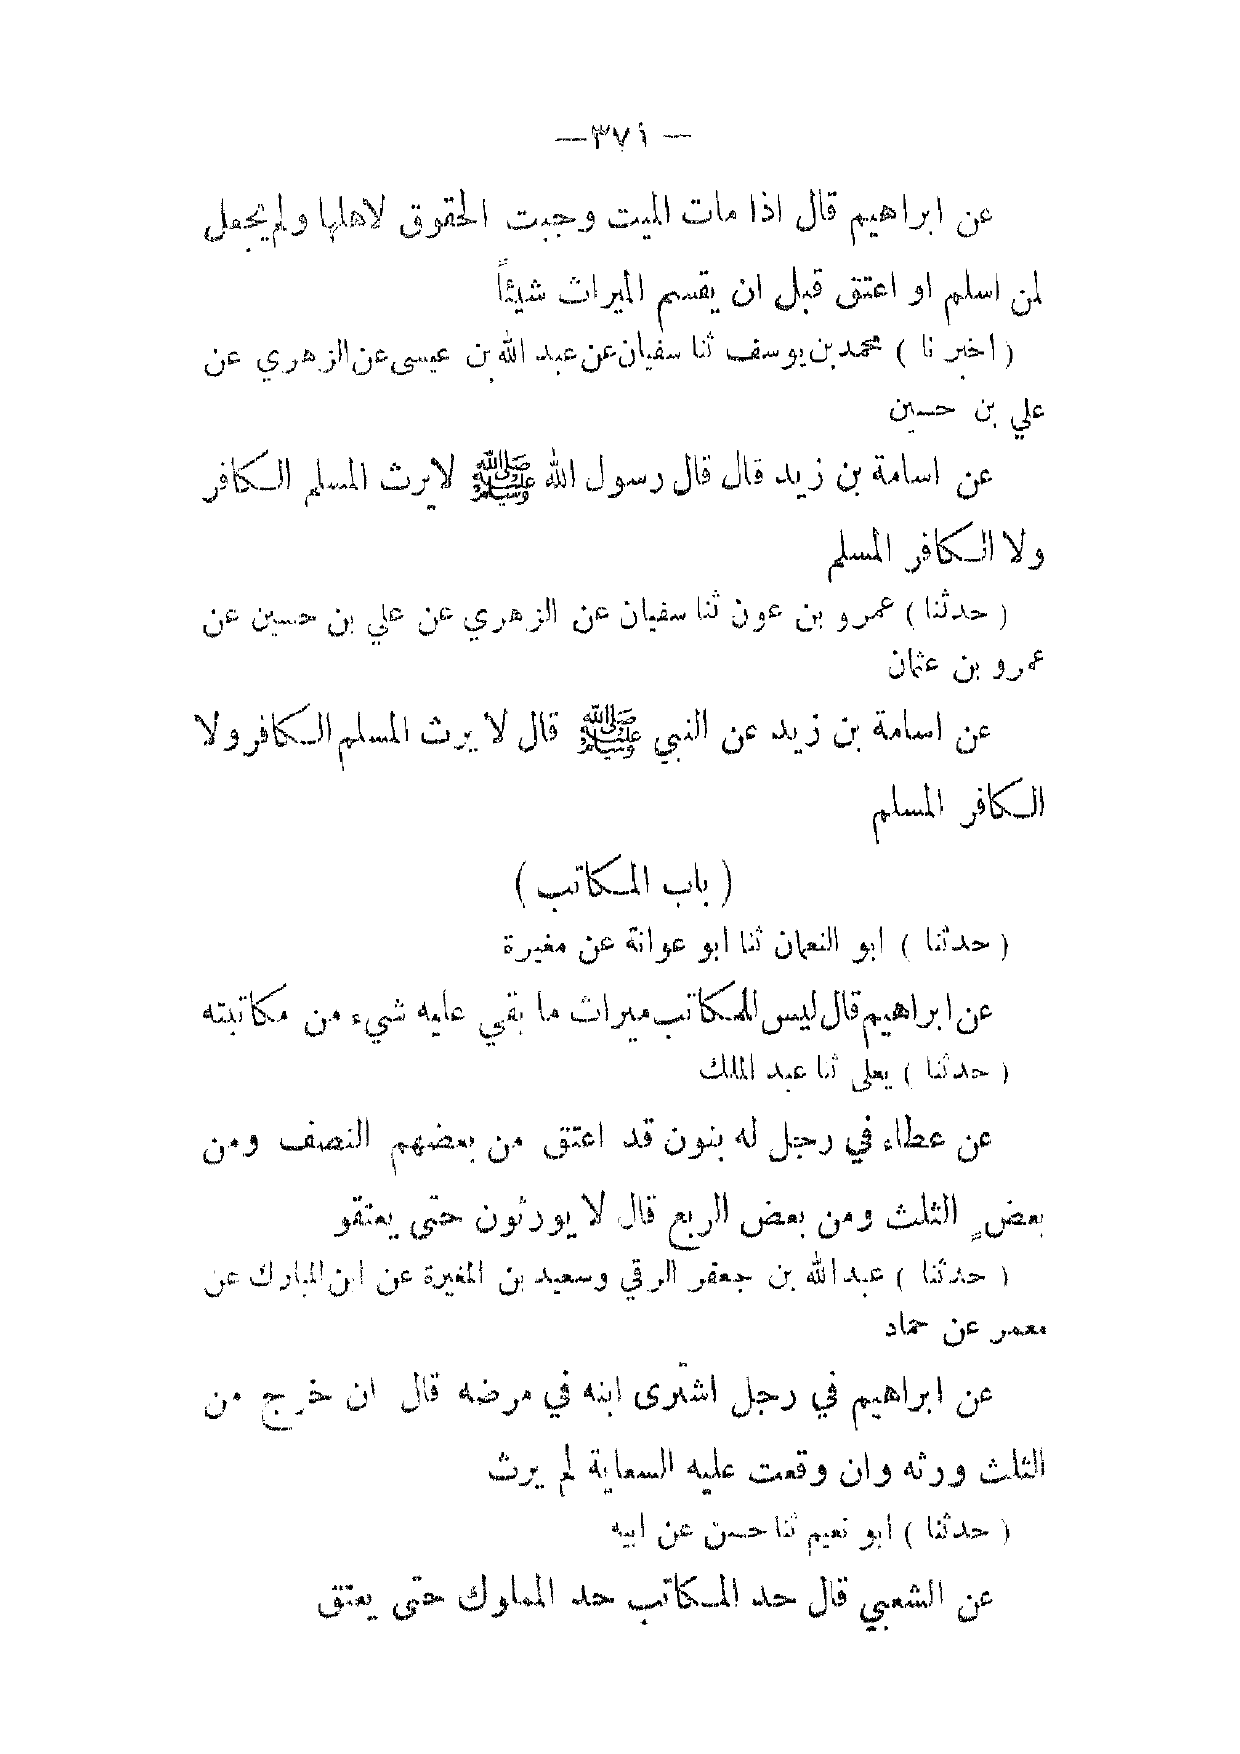 — ٣٧١ —
عن ابراهيم قال اذا مات الميت وجبت الحقوق لاهلها ولم يجعل
لمن اسلم او اعتق قبل ان يقسم الميراث شيئاً
( اخبر نا ) محمد بن يوسف ثنا سفيان عن عبد الله بن عيسى عن الزهري عن
علي بن حسين
عن اسامة بن زيد قال قال رسول الله ﷺ لا يرث المسلم الكافر
ولا الكافر المسلم
( حدثنا ) عمرو بن عون ثنا سفيان عن الزهري عن علي بن حسين عن
عمرو بن عثمان
عن اسامة بن زيد عن النبي ﷺ قال لا يرث المسلم الكافر ولا
الكافر المسلم
( باب المكاتب )
( حدثنا ) ابو النعمان ثنا ابو عوانة عن مغيرة
عن ابراهيم قال ليس للمكاتب ميراث ما بقي عليه شيء من مكاتبته
( حدثنا ) يعلى ثنا عبد الملك
عن عطاء في رجل له بنون قد اعتق من بعضهم النصف ومن
بعضٍ الثلث ومن بعض الربع قال لا يورثون حتى يعتقو
( حدثنا ) عبد الله بن جعفر الرقي وسعيد بن المغيرة عن ابن المبارك عن
معمر عن حماد
عن ابراهيم في رجل اشترى ابنه في مرضه قال ان خرج من
الثلث ورثه وان وقعت عليه السعاية لم يرث
( حدثنا ) ابو نعيم ثنا حسن عن ابيه
عن الشعبي قال حد المكاتب حد المملوك حتى يعتق